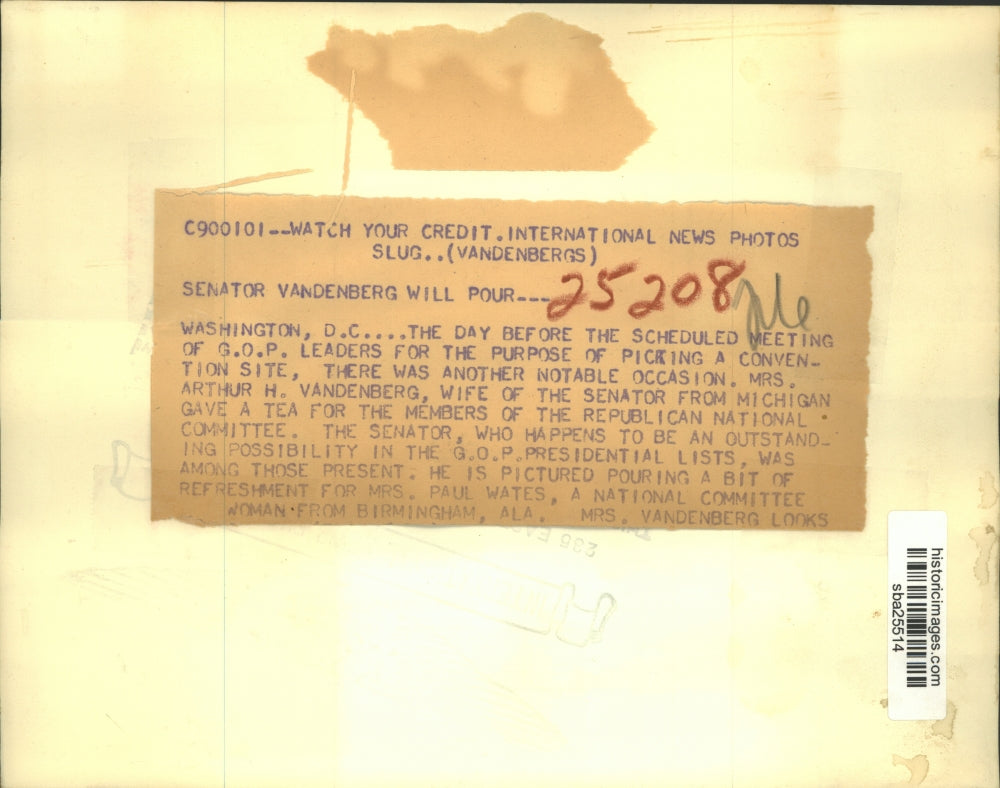 C900101--WATCH YOUR CREDIT.INTERNATIONAL NEWS PHOTOS
SLUG..(VANDENBERGS)
SENATOR VANDENBERG WILL POUR---
25208
WASHINGTON, D.C....THE DAY BEFORE THE SCHEDULED MEETING
OF G.O.P. LEADERS FOR THE PURPOSE OF PICKING A CONVEN-
TION SITE, THERE WAS ANOTHER NOTABLE OCCASION. MRS.
ARTHUR H. VANDENBERG, WIFE OF THE SENATOR FROM MICHIGAN
GAVE A TEA FOR THE MEMBERS OF THE REPUBLICAN NATIONAL
COMMITTEE. THE SENATOR, WHO HAPPENS TO BE AN OUTSTAND-
ING POSSIBILITY IN THE G.O.P.PRESIDENTIAL LISTS, WAS
AMONG THOSE PRESENT. HE IS PICTURED POURING A BIT OF
REFRESHMENT FOR MRS. PAUL WATES, A NATIONAL COMMITTEE
WOMAN FROM BIRMINGHAM, ALA. MRS. VANDENBERG LOOKS
historicimages.com
sba25514